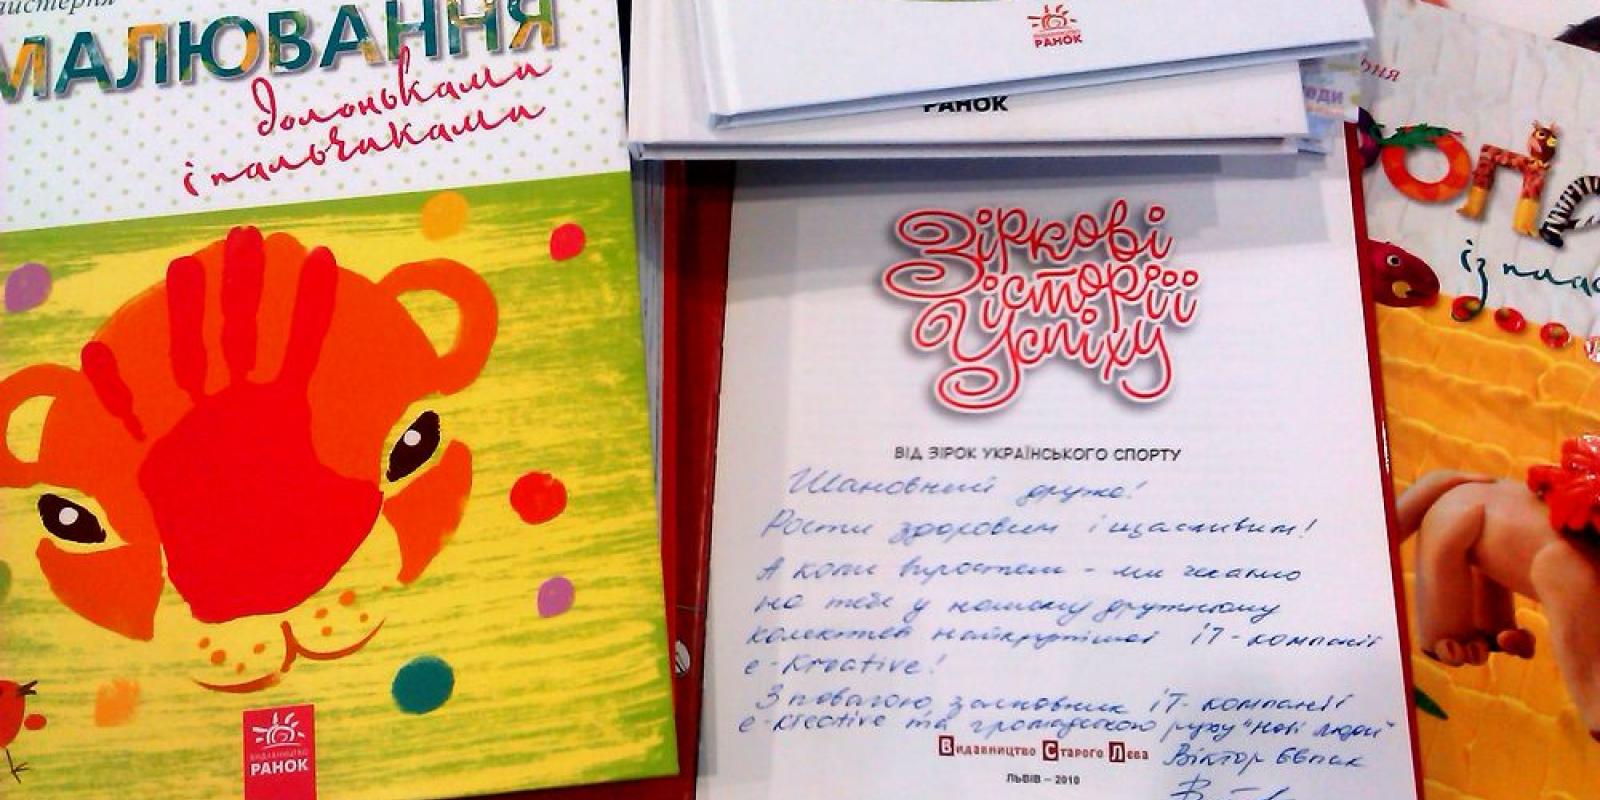 айстерня
МАЛЮВАННЯ
долоньками
і пальчиками
ВИДАВНИЦТВО
РАНОК
ВИДАВНИЦТВО
РАНОК
РАНОК
Зіркові
історії
Успіху
ВІД ЗІРОК УКРАЇНСЬКОГО СПОРТУ
Шановний друже!
Рости здоровим і щасливим!
А коли виростеш - ми чекаємо
на тебе у нашому дружньому
колективі найкрутішої ІТ-компанії
e-Kreative!
З повагою, засновник ІТ-компанії
e-kreative та громадського руху "Нові люди"
Віктор Євпак
Видавництво Старого Лева
ЛЬВІВ – 2010
із плас